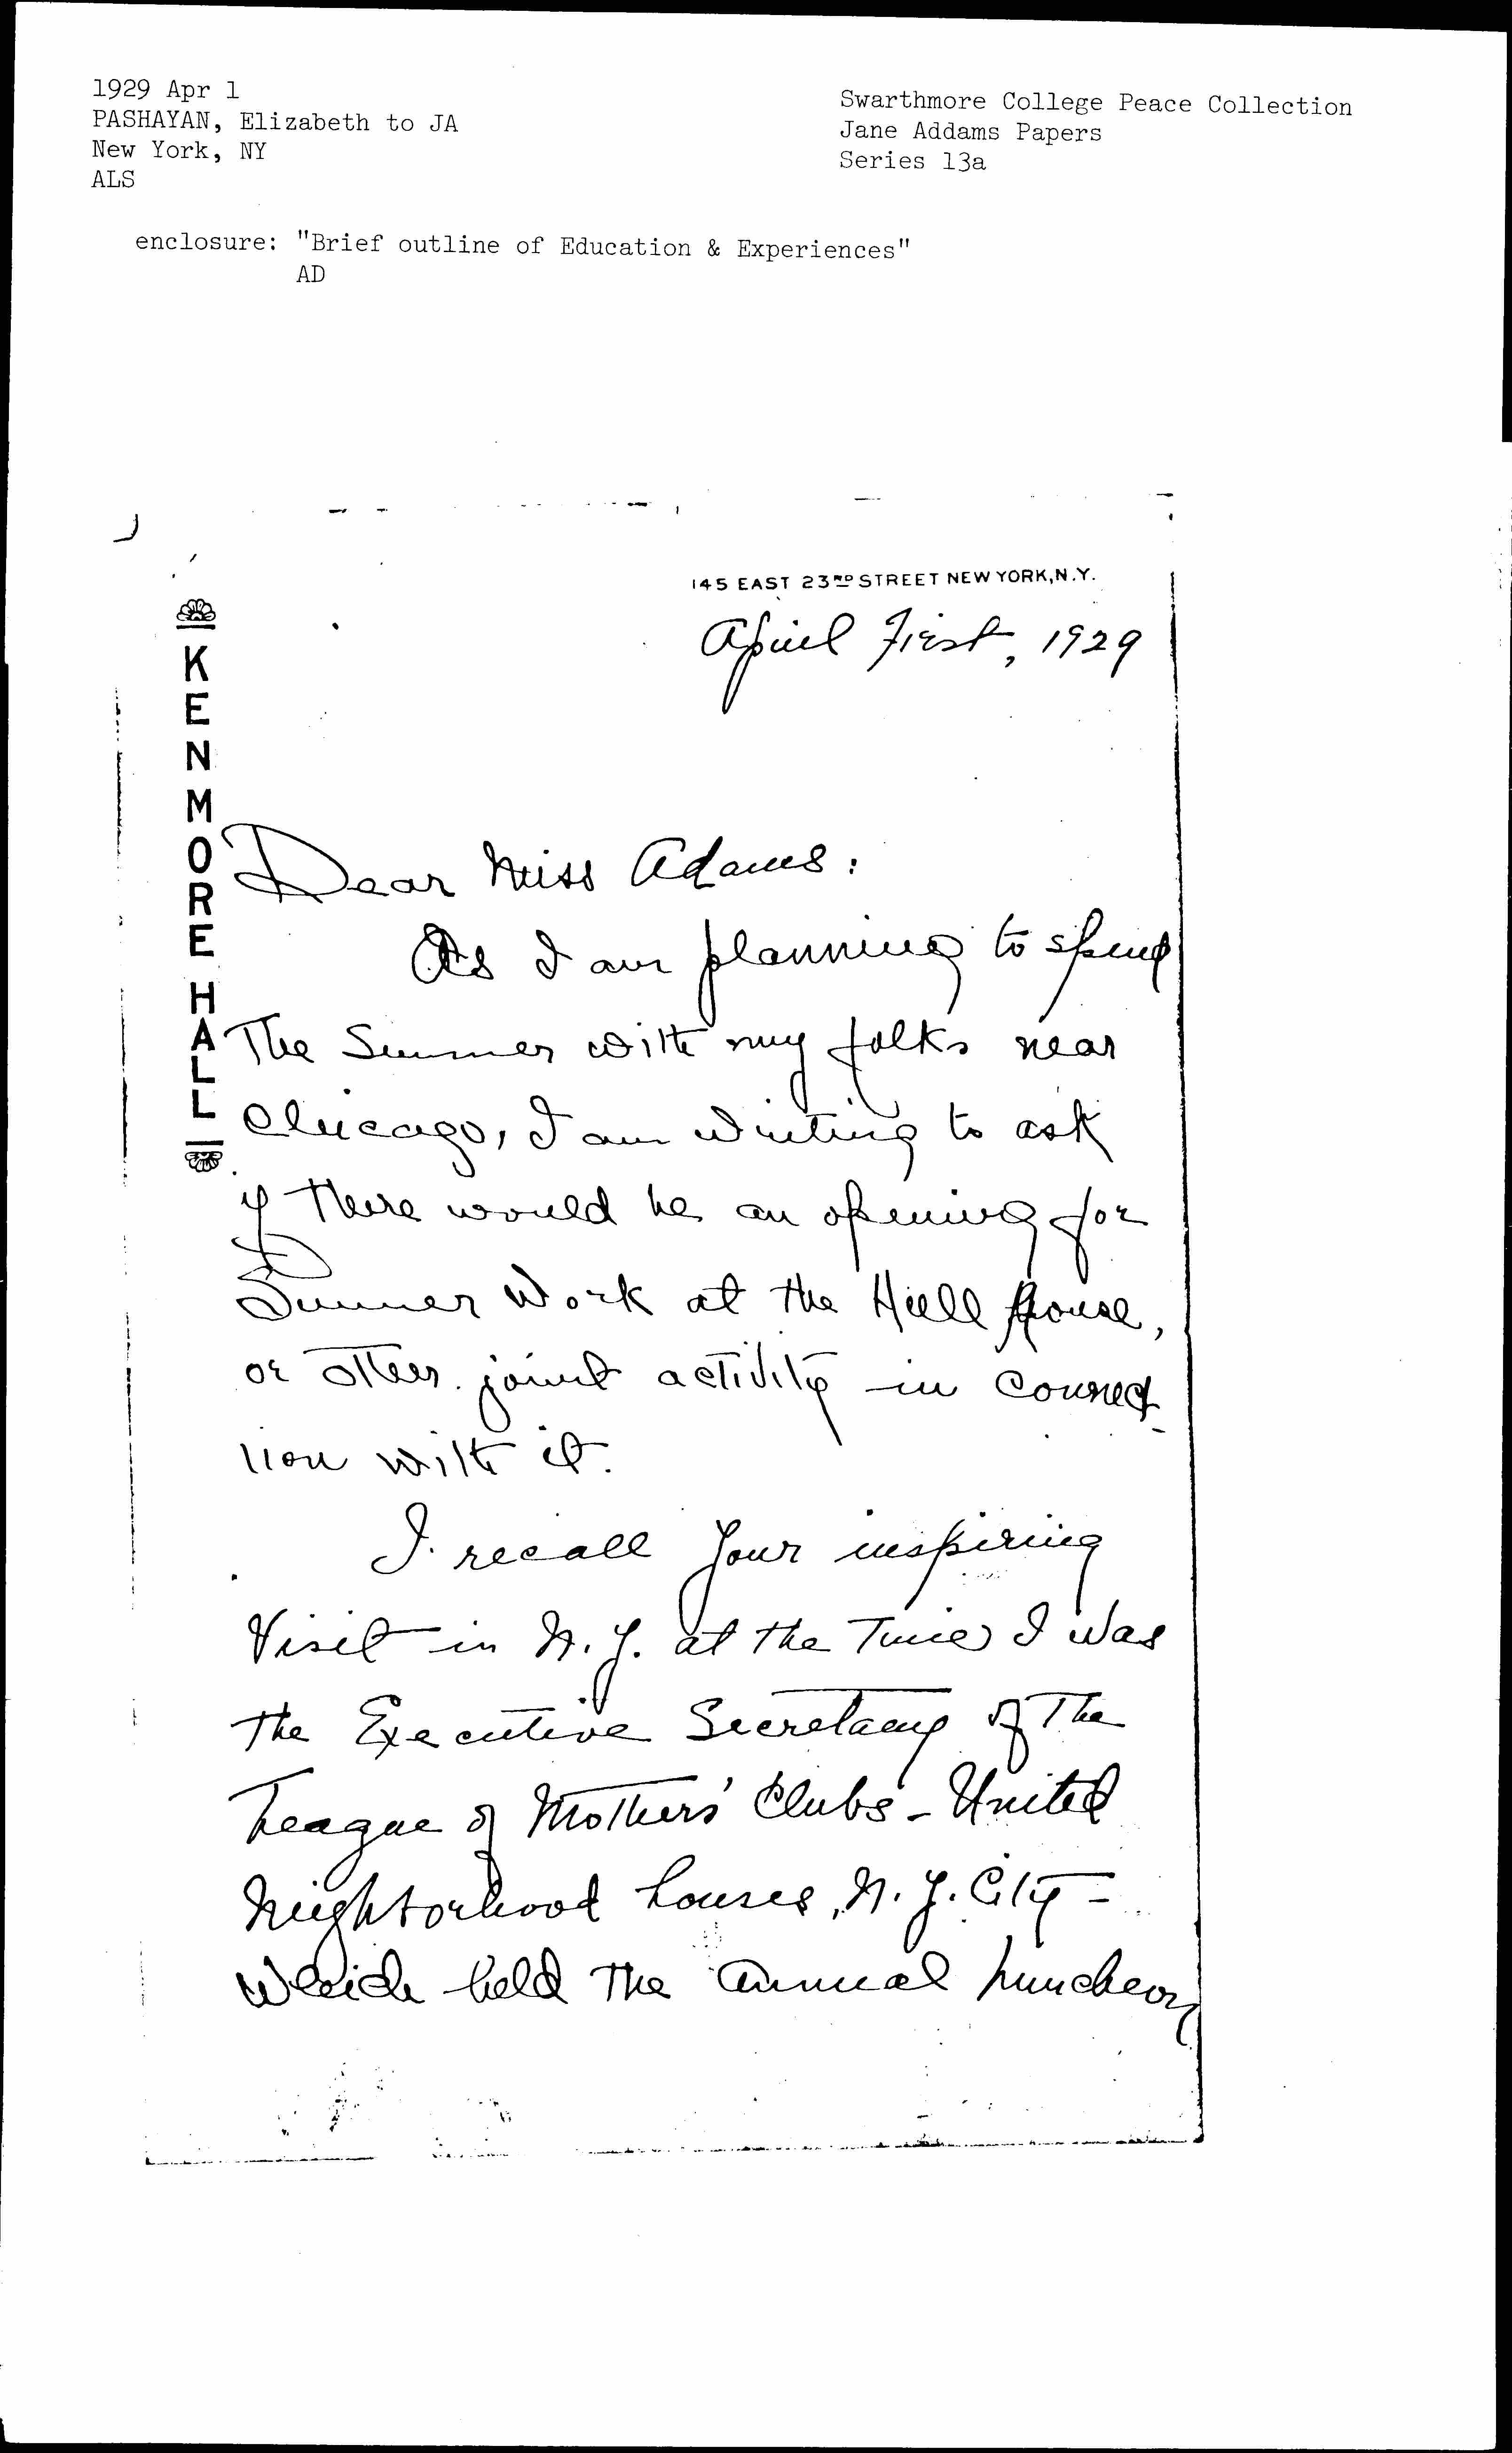 1929 Apr 1
PASHAYAN, Elizabeth to JA
New York, NY
ALS
enclosure: "Brief outline of Education & Experiences"
AD
Swarthmore College Peace Collection
Jane Addams Papers
Series 13a
KENMORE HALL
145 EAST 23RD STREET NEW YORK, N.Y.
April First, 1929
Dear Miss Adams:
As I am planning to spend
The Summer with my folks near
Chicago, I am writing to ask
if There would be an opening for
Summer Work at the Hull House,
or other joint activity in connec-
tion with it.
I recall Your inspiring
Visit in N.Y. at the Time I was
the Executive Secretary of The
League of Mothers' Clubs - United
Neighborhood Houses, N.Y. City -
which held The Annual Luncheon